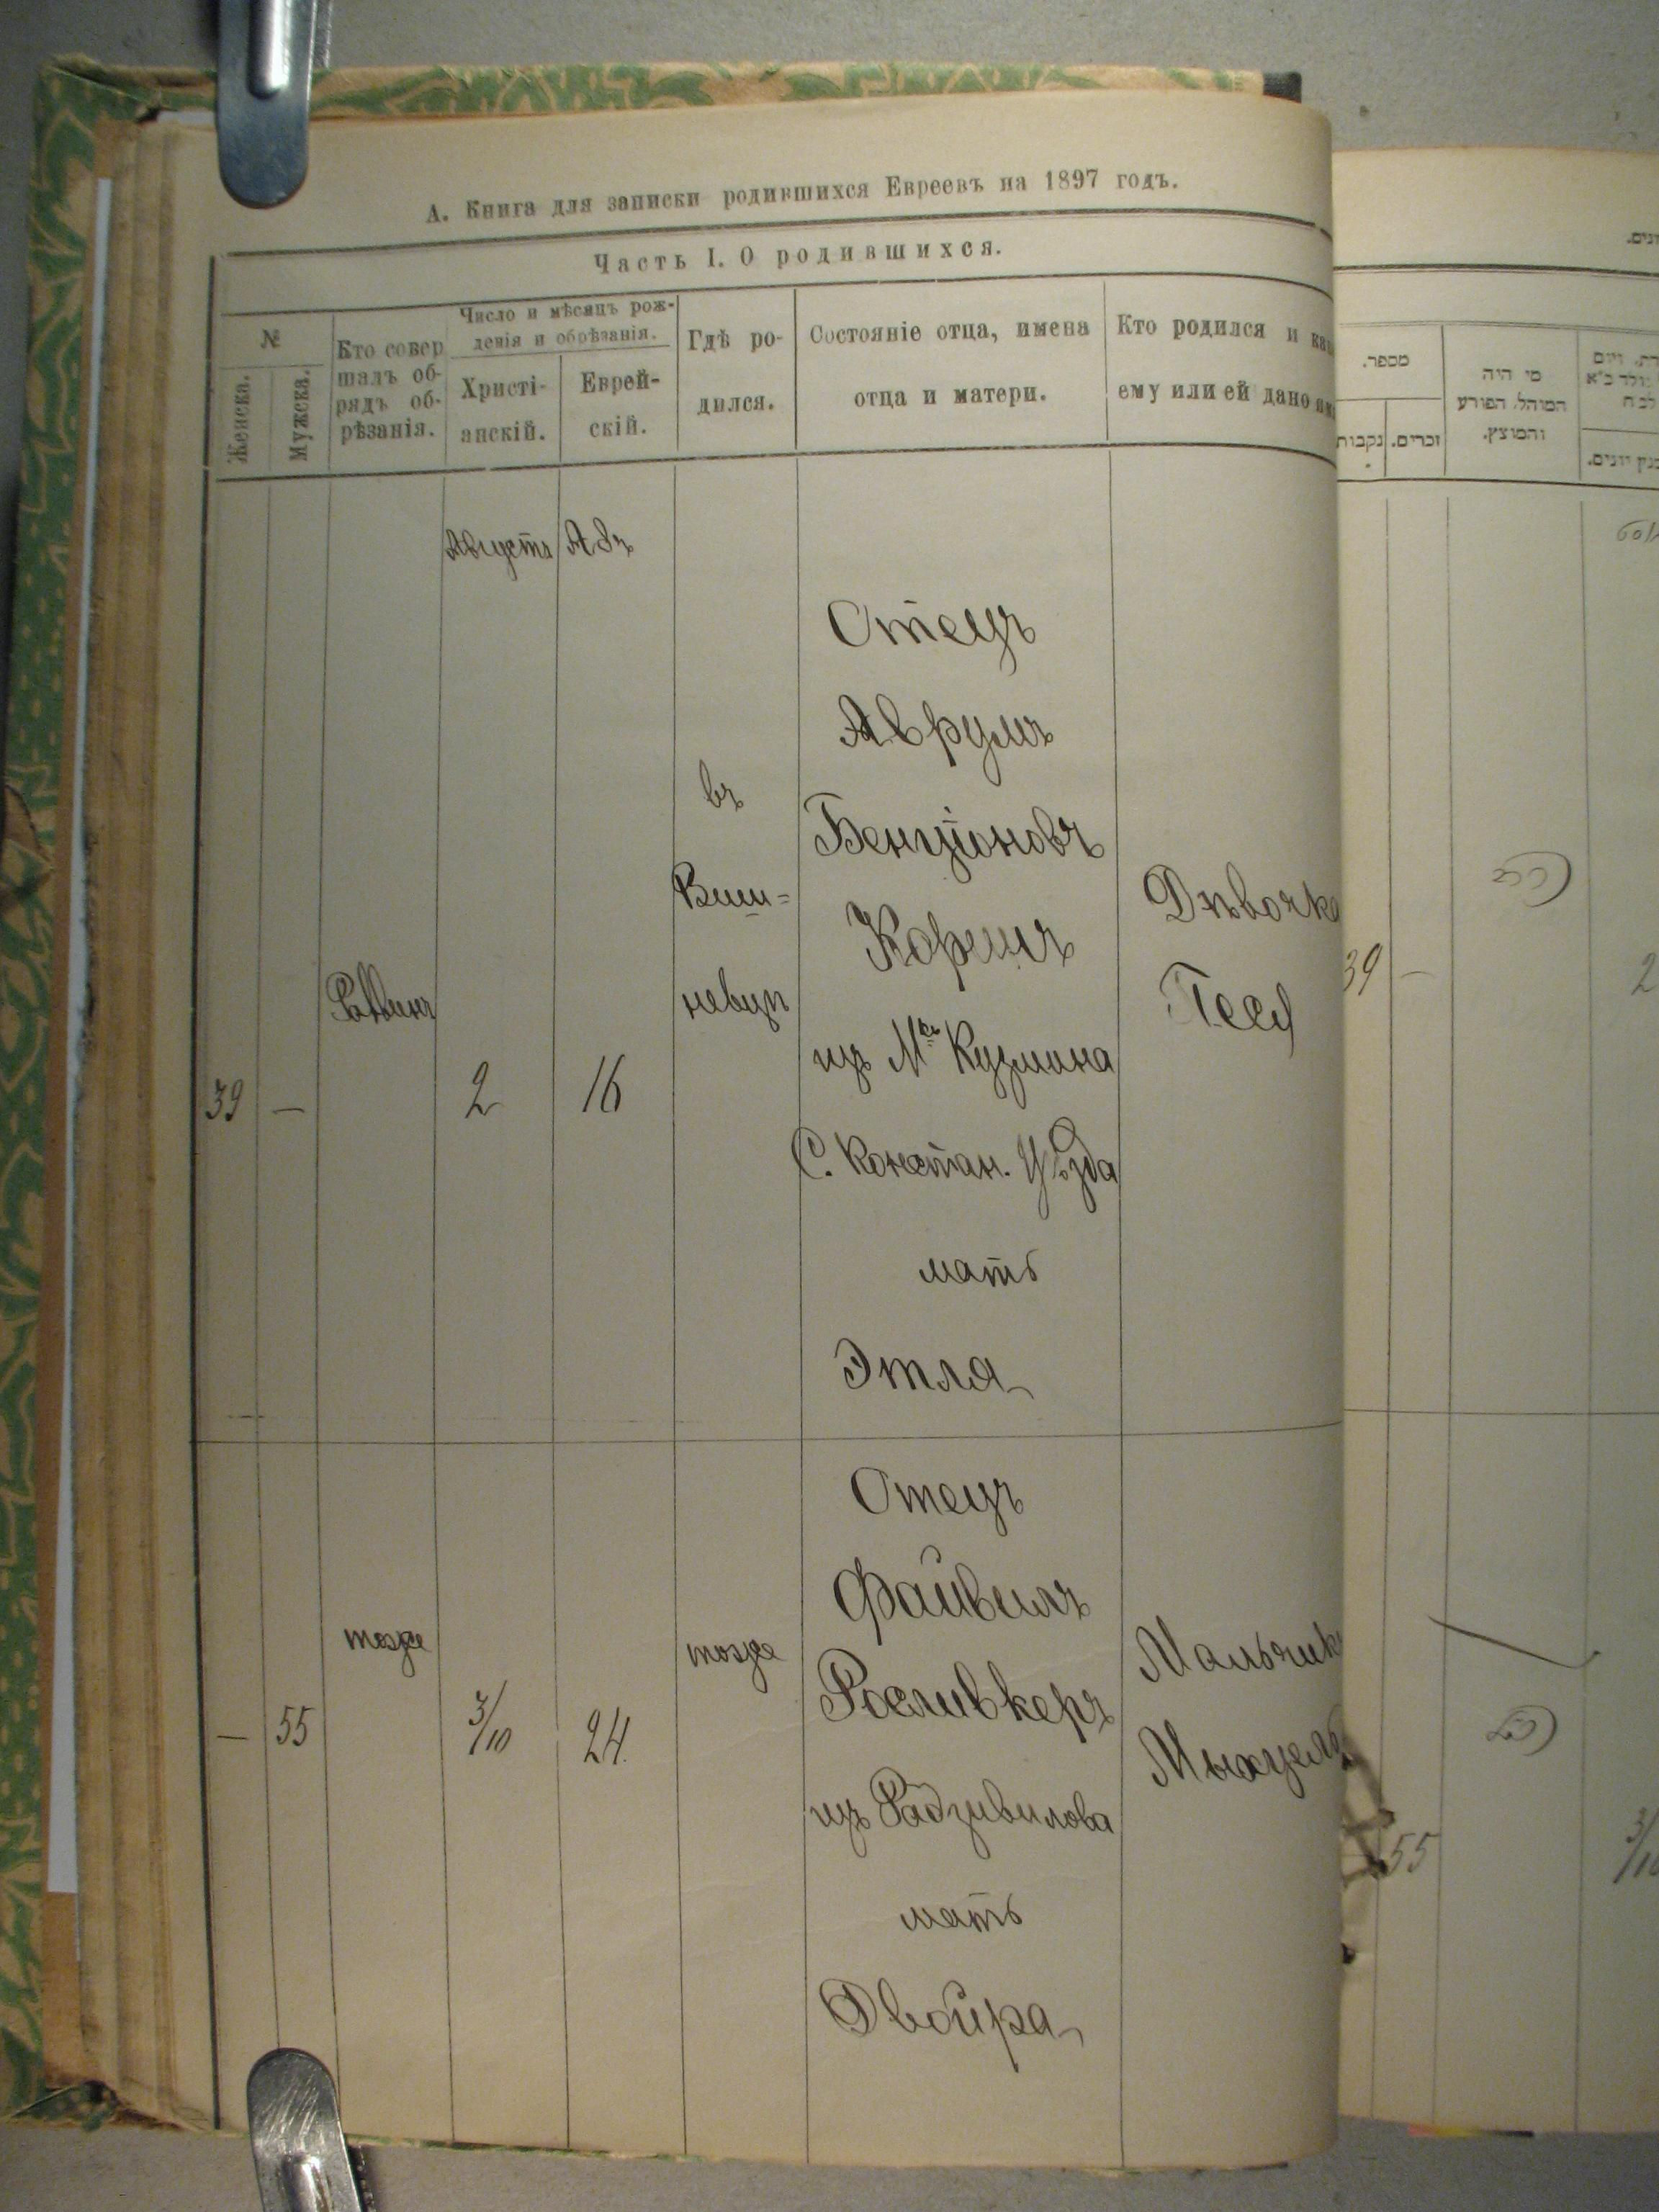 А. Книга для записки родившихся Евреевъ на 1897 годъ.
Часть I. О родившихся.
№
Женска.
Мужска.
Кто совер
шалъ об-
рядъ об-
рѣзанія.
Число и мѣсяцъ рож-
денія и обрѣзанія.
Христі-
анскій.
Еврей-
скій.
Гдѣ ро-
дился.
Состояніе отца, имена
отца и матери.
Кто родился и как
ему или ей дано им
Августъ
Авъ
39
—
Раввинъ
2
16
въ
Виш=
невцѣ
Отецъ
Аврумъ
Бенціоновъ
изъ Мка Кузмина
С. Констан. Уѣзда
мать
Этля
Дѣвочка
Геся
—
55
тоже
3/10
24
тоже
Отецъ
Файвель
Росливкеръ
изъ Радзивилова
мать
Двойра
Мальчик
מספר.
נקבות
זכרים.
מי היה
המוהל. הפורע
והמוצץ.
39
—
2
55
3/10